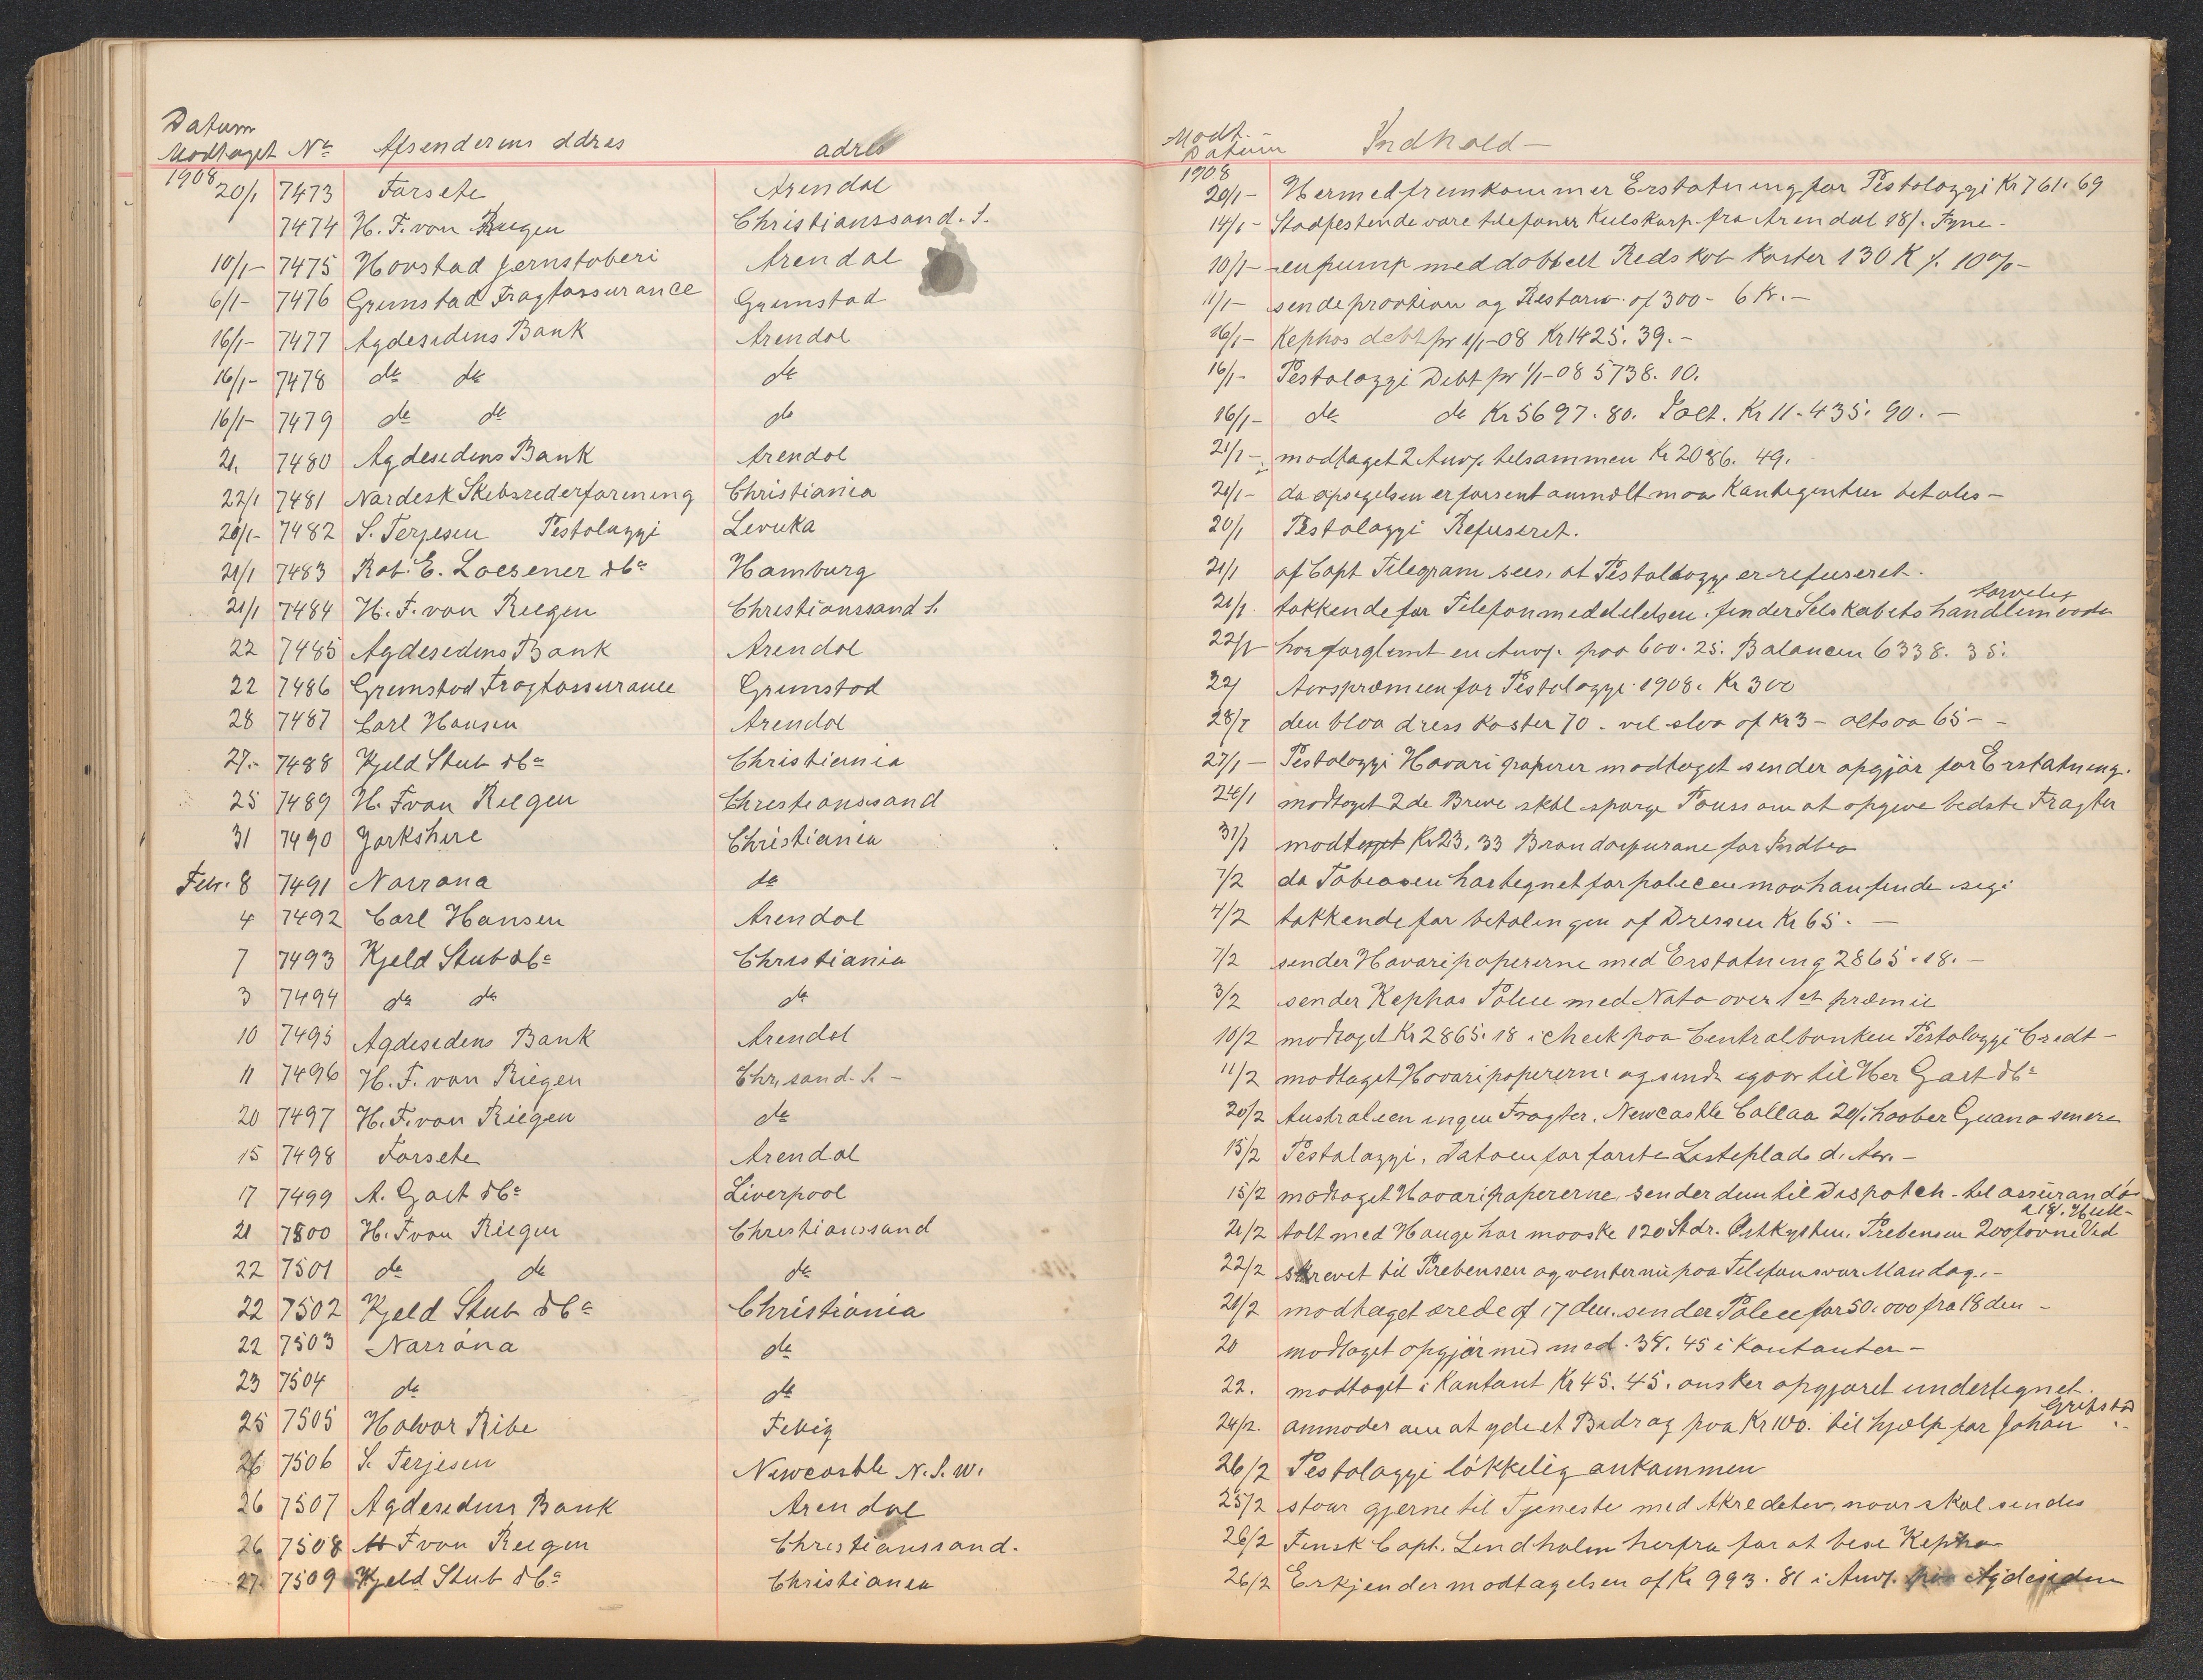 Datum
Modtaget No Afsenderens addres adres
1908
20/1 7473 Forsete Arendal
7474 H. F. von Riegen Christianssand. S.
10/1- 7475 Hovstad Jernstøberi Arendal
6/1- 7476 Grimstad Fragtassurance Grimstad
16/1- 7477 Agdesidens Bank Arendal
16/1- 7478 do do do
16/1- 7479 do do do
21. 7480 Agdesidens Bank Arendal
22/1 7481 Nordisk Skibsrederforening Christiania
20/1- 7482 S. Terjesen Pestolozzi Levuka
21/1 7483 Rob. E. Loesener & Co Hamburg
21/1 7484 H. F. von Riegen Christianssand S.
22 7485 Agdesidens Bank Arendal
22 7486 Grimstad Fragtassurance Grimstad
28 7487 Carl Hansen Arendal
27.- 7488 Kjeld Stub & Co Christiania
25 7489 H. F von Riegen Christianssand
31 7490 Yorkshire Christiania
Febr. 8 7491 Norrøna do
4 7492 Carl Hansen Arendal
7 7493 Kjeld Stub & Co Christiania
3 7494 do do do
10 7495 Agdesidens Bank Arendal
11 7496 H. F. von Riegen Chr,sand. S. -
20 7497 H. F. von Riegen do
15 7498 Forsete Arendal
17 7499 A. Gast & Co Liverpool
21 7500 H. F von Riegen Christianssand
22 7501 do do do
22 7502 Kjeld Stub & Co Christiania
22 7503 Norróna do
23 7504 do do
25 7505 Halvor Ribe Fevig
26 7506 S. Terjesen Newcastle N. S. W.
26 7507 Agdesidens Bank Arendal
26 7508 H F von Riegen Christianssand.
27. 7509 Kjeld Stub & Co Christiania
Modt. -
Datum Indhold -
1908
20/1- Hermed fremkommer Erstatning for Pestolozzi Kr 761. 69
14/1- Stadfestende vore telefoner Kulskorp. fra Arendal 18/. Tyne -
10/1- en pump med dobbelt Redskab koster 130 K %. 10%-
11/1- sende provtion og Restorn. of 300 - 6 Kr. -
16/1- Kephas debt pr 1/1-08 Kr 1425. 39. -
16/1- Pestolozzi Debt pr 1/1-08 5738. 10.
16/1- do do Kr 5697. 80. Ialt. Kr 11.435. 90. -
21/1- modtaget 2 Anv. tilsammen Kr 2086. 49.
20/1- da opsigelsen er forsent anmeldt maa Kontigenten betales -
20/1 Pestolozzi Refuseret.
21/1 af Capt Telegram sees, at Pestolozzi er refuseret.
21/1. takkende for Telefonmeddelelsen. finder Selskabets handlemaade
tarvelig
22/1 har forglemt en Anv. paa 600. 25. Balancen 6338. 35.
22/ Aarspræmien for Pestolozzi 1908. Kr 300
28/1 den blaa dress koster 70 - vil slaa af Kr 3 - altsaa 65 - -
27/1- Pestolozzi Havari papirer modtaget sender opgjør for Erstatning.
24/1 modtaget 2 de Breve skal spørge Pauss om at opgive bedste Fragter
31/1 modtaget Kr 23. 33 Brandassurance for Indbo
7/2 da Tobiasen har tegnet for policen maa han finde sig i
4/2 takkende for betalingen af Dressen Kr 65. -
7/2 sender Havaripapirerne med Erstatning 2865. 18. -
3/2 sender Kephas Police med Nota over 1st præmie
10/2 modtaget Kr 2865. 18 i check paa Centralbanken Pestolozzi Credt -
11/2 modtaget Havaripapirerne og sendt igaar til Her Gast & Co
20/2 Australien ingen Fragter. Newcastle Callao 20/. haaber Guano senere
15/2 Pestalozzi, Datoen for første Losteplads d. Anv. -
15/2 modtaget Havaripapirerne, sender dem til Dispatch - til assurandø
21/2 talt med Hauge har maaske 120 Stdr. Østkysten. Prebensen 200 favne Ved
a 18/. Hull-
22/2 skrevet til Prebensen og venter nu paa Telefonsvar Mandag. -
21/2 modtaget ærede af 17 den. sender Police for 50.000 fra 18 den -
20 modtaget opgjør med med. 38. 45 i Kontanter -
22. modtaget i Kontant Kr 45. 45. ønsker opgjøret undertegnet.
24/2. anmoder om at yde et Bidrag paa Kr 100. til hjælp for Johan
Gribstad
26/2 Pestolozzi løkkelig ankommen
25/2 staar gjerne til Tjeneste med Akreditiv, naar skal sendes
26/2 Finsk Capt. Lindholm herfra for at bese Kephas
26/2 Erkjender modtagelsen af Kr 993. 81 i Anv. paa Agdesiden